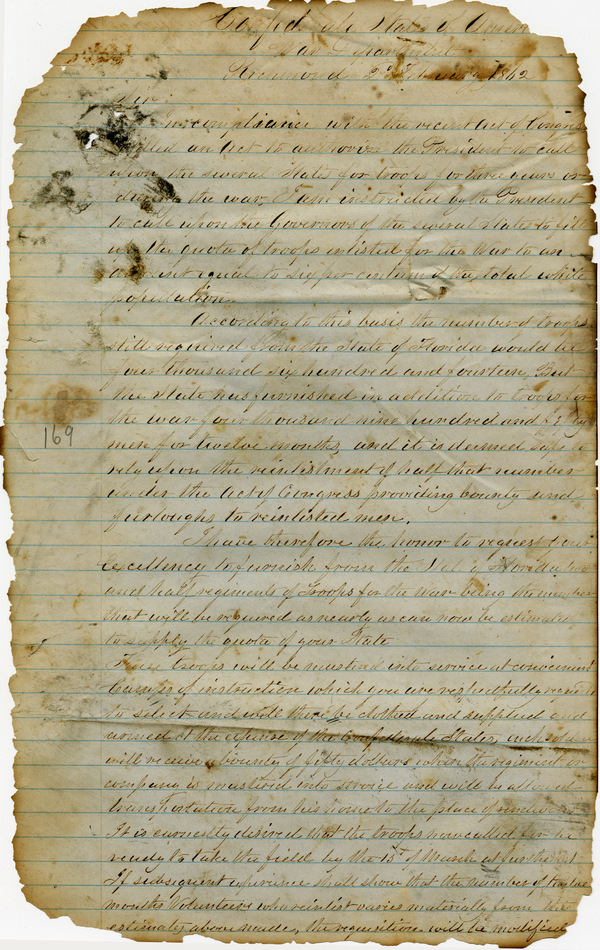 Confederate States of Amer
War Department
Richmond 2d February 1862
Sir
In compliance with the recent Act of Congress
entitled an Act to authorize the President to call
upon the several States for troops for three years or
during the war, I am instructed by the President
to call upon the Governors of the several States to fill
up the quota of troops enlisted for the War to an
amount equal to six per centum of the total white
population.
According to this basis the number of troops
still required from the State of Florida would be
four thousand six hundred and fourteen. But
the State has furnished in addition to troops for
the war four thousand nine hundred and
men for twelve months, and it is deemed safe to
rely upon the reinlistment of half that number
under the Act of Congress providing bounty and
furloughs to reinlisted men.
I have therefore the honor to request your
Excellency to furnish from the State of Florida two
and half regiments of Troops for the War being the number
that will be required as nearly as can now be estimated
to supply the quota of your State
169
These troops will be mustered into service at convenient
Camps of instruction which you are respectfully requested
to select and will there be clothed and supplied and
armed at the expense of the Confederate States, each soldier
will receive a bounty of fifty dollars when the regiment or
company is mustered into service and will be allowed
transportation from his home to the place of
It is earnestly desired that the troops now called for be
ready to take the field by the 15th of March at furthest
If subsequent experience shall show that the number of twelve
months Volunteers who reinlist varies materially from the
estimates above made, the requisition will be modified